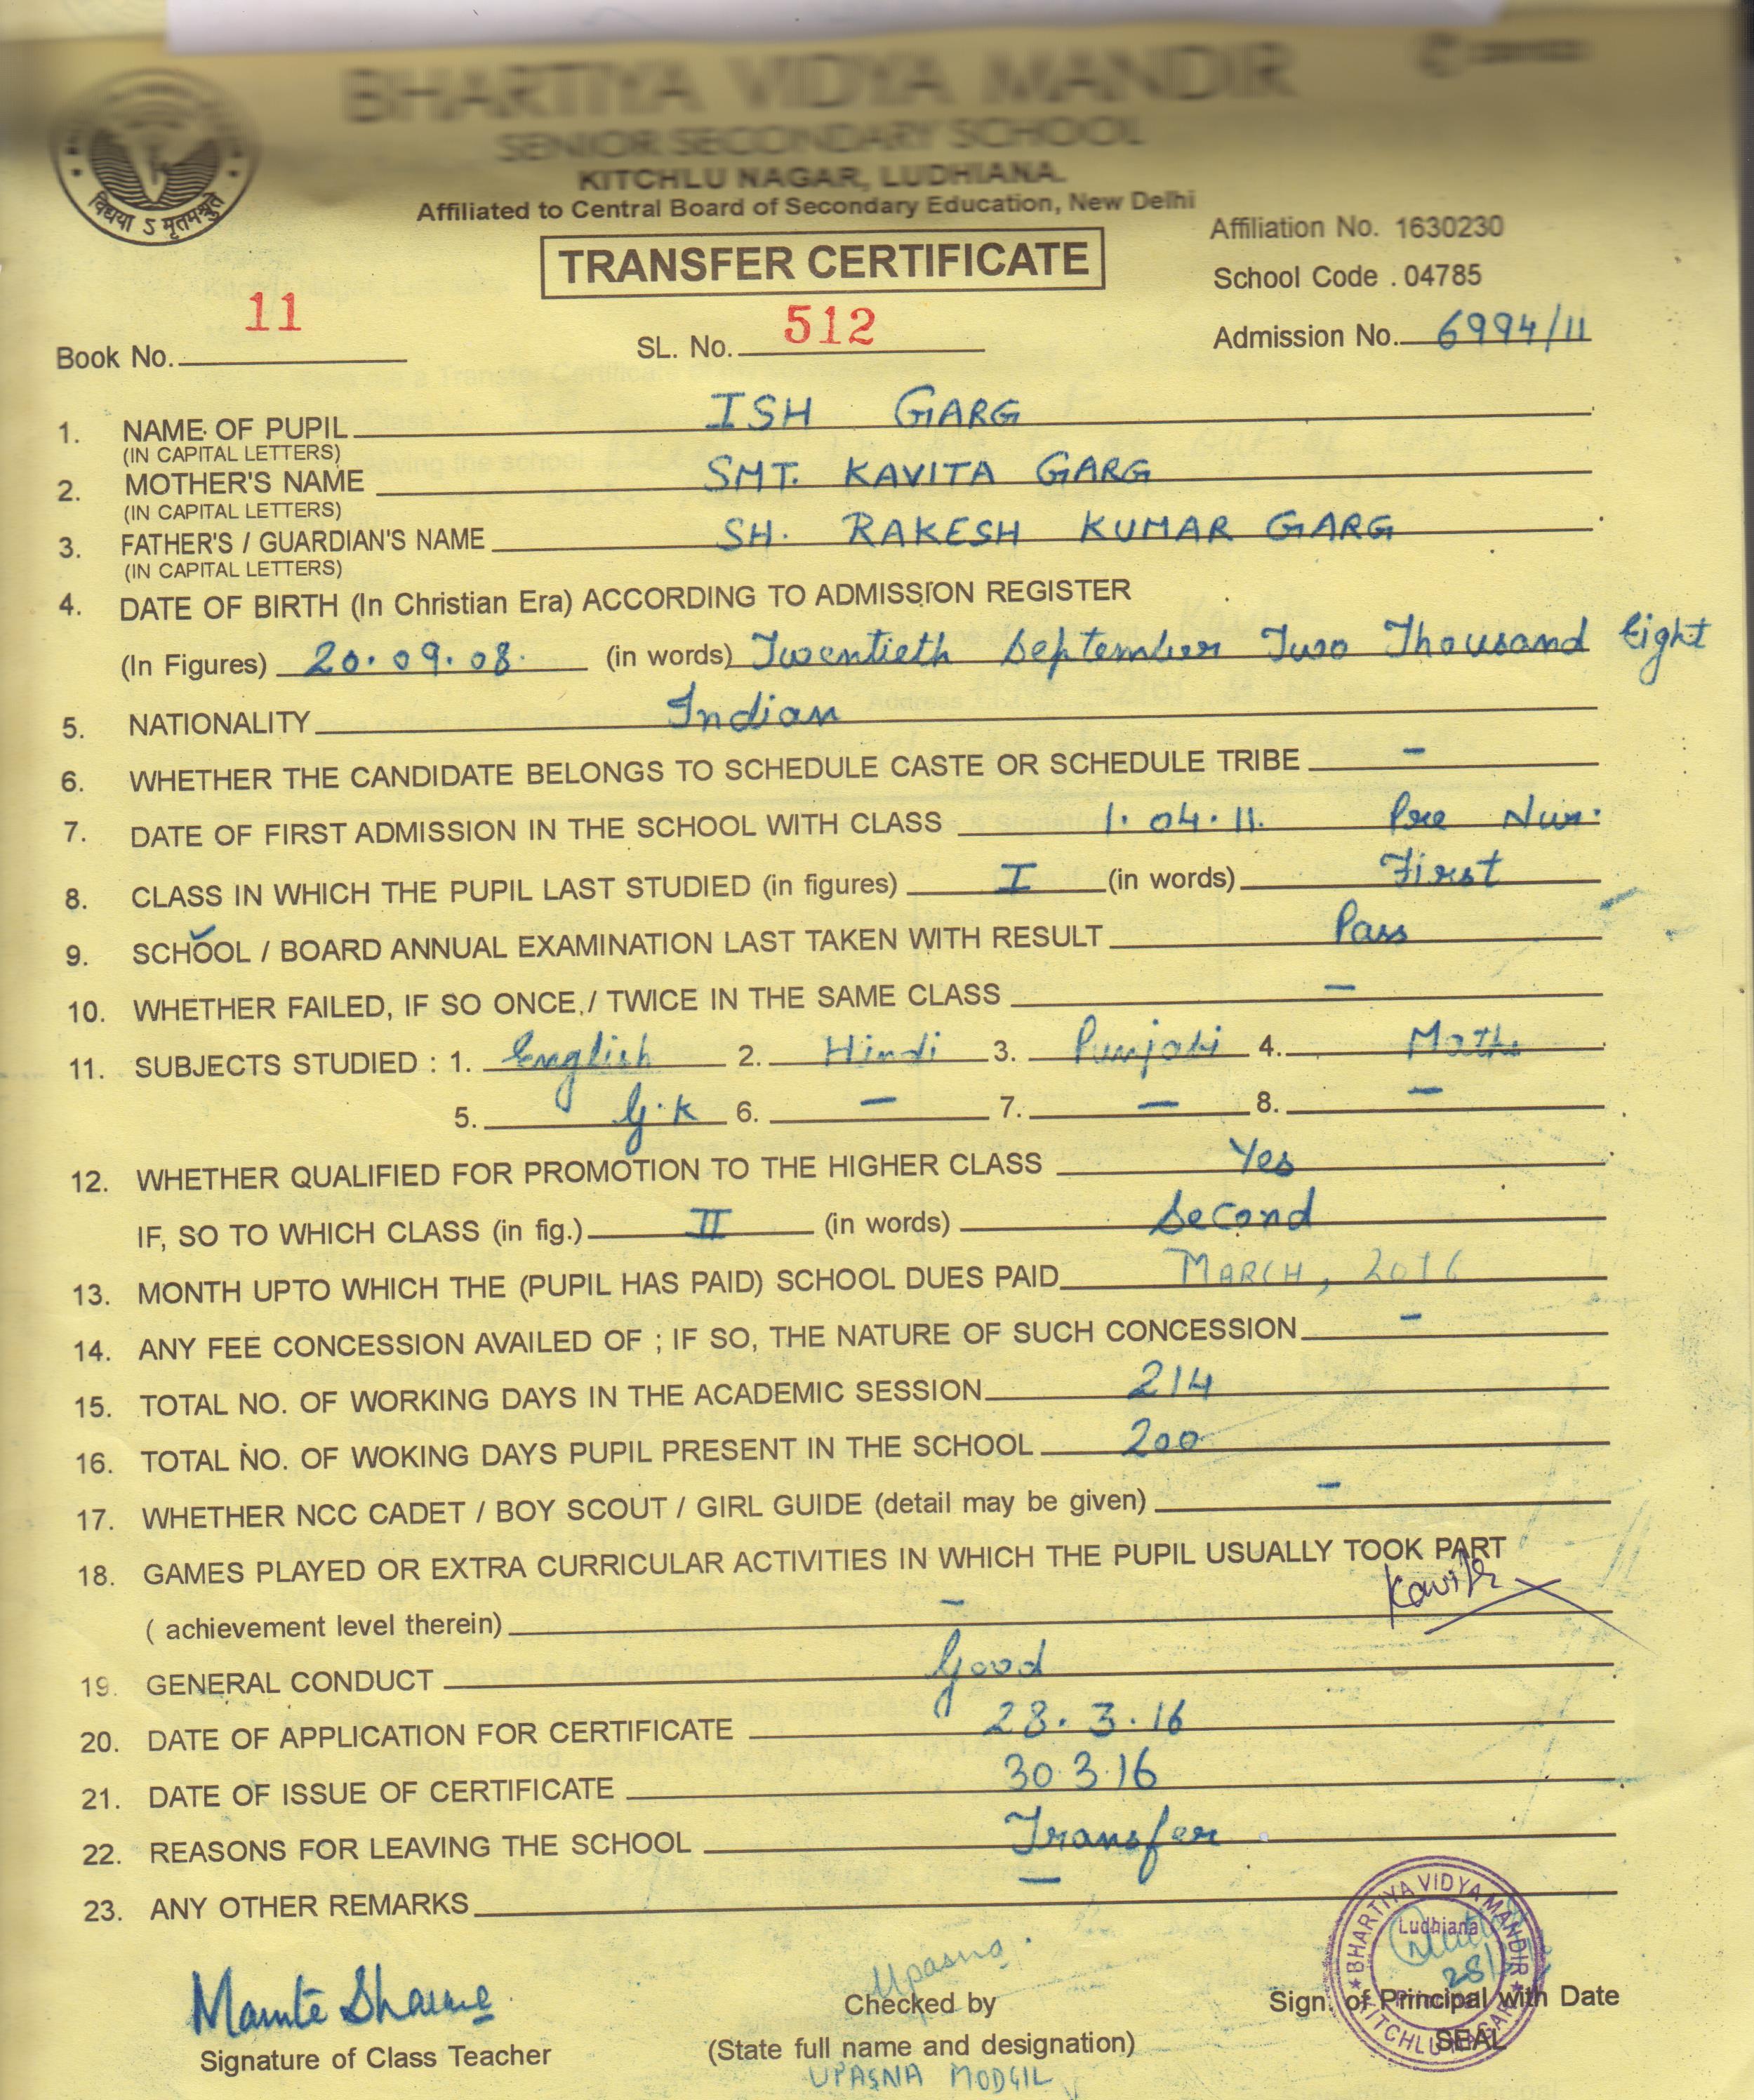 BHARTIYA VIDYA MANDIR
SENIOR SECONDARY SCHOOL
KITCHLU NAGAR, LUDHIANA.
Affiliated to Central Board of Secondary Education, New Delhi
विद्यया ऽ मृतमश्नुते
Affiliation No. 1630230
TRANSFER CERTIFICATE
School Code . 04785
Book No. 11 SL. No. 512 Admission No. 6994/11
1. NAME OF PUPIL ISH GARG
(IN CAPITAL LETTERS)
2. MOTHER'S NAME SMT. KAVITA GARG
(IN CAPITAL LETTERS)
3. FATHER'S / GUARDIAN'S NAME SH. RAKESH KUMAR GARG
(IN CAPITAL LETTERS)
4. DATE OF BIRTH (In Christian Era) ACCORDING TO ADMISSION REGISTER
(In Figures) 20.09.08. (in words) Twentieth September Two Thousand Eight
5. NATIONALITY Indian
6. WHETHER THE CANDIDATE BELONGS TO SCHEDULE CASTE OR SCHEDULE TRIBE –
7. DATE OF FIRST ADMISSION IN THE SCHOOL WITH CLASS 1.04.11. Pre Nur.
8. CLASS IN WHICH THE PUPIL LAST STUDIED (in figures) I (in words) First
9. SCHOOL / BOARD ANNUAL EXAMINATION LAST TAKEN WITH RESULT Pass
10. WHETHER FAILED, IF SO ONCE / TWICE IN THE SAME CLASS –
11. SUBJECTS STUDIED : 1. English 2. Hindi 3. Punjabi 4. Maths
5. G.K 6. – 7. – 8. –
12. WHETHER QUALIFIED FOR PROMOTION TO THE HIGHER CLASS Yes
IF, SO TO WHICH CLASS (in fig.) II (in words) Second
13. MONTH UPTO WHICH THE (PUPIL HAS PAID) SCHOOL DUES PAID MARCH, 2016
14. ANY FEE CONCESSION AVAILED OF ; IF SO, THE NATURE OF SUCH CONCESSION –
15. TOTAL NO. OF WORKING DAYS IN THE ACADEMIC SESSION 214
16. TOTAL NO. OF WOKING DAYS PUPIL PRESENT IN THE SCHOOL 200
17. WHETHER NCC CADET / BOY SCOUT / GIRL GUIDE (detail may be given) –
18. GAMES PLAYED OR EXTRA CURRICULAR ACTIVITIES IN WHICH THE PUPIL USUALLY TOOK PART
Kavita
( achievement level therein) –
19. GENERAL CONDUCT Good
20. DATE OF APPLICATION FOR CERTIFICATE 28.3.16
21. DATE OF ISSUE OF CERTIFICATE 30.3.16
22. REASONS FOR LEAVING THE SCHOOL Transfer
23. ANY OTHER REMARKS –
BHARTIYA VIDYA MANDIR
Ludhiana
Principal
KITCHLU NAGAR
Mamta Sharma Upasna
Signature of Class Teacher Checked by Sign. of Principal with Date
(State full name and designation) SEAL
UPASNA MODGIL